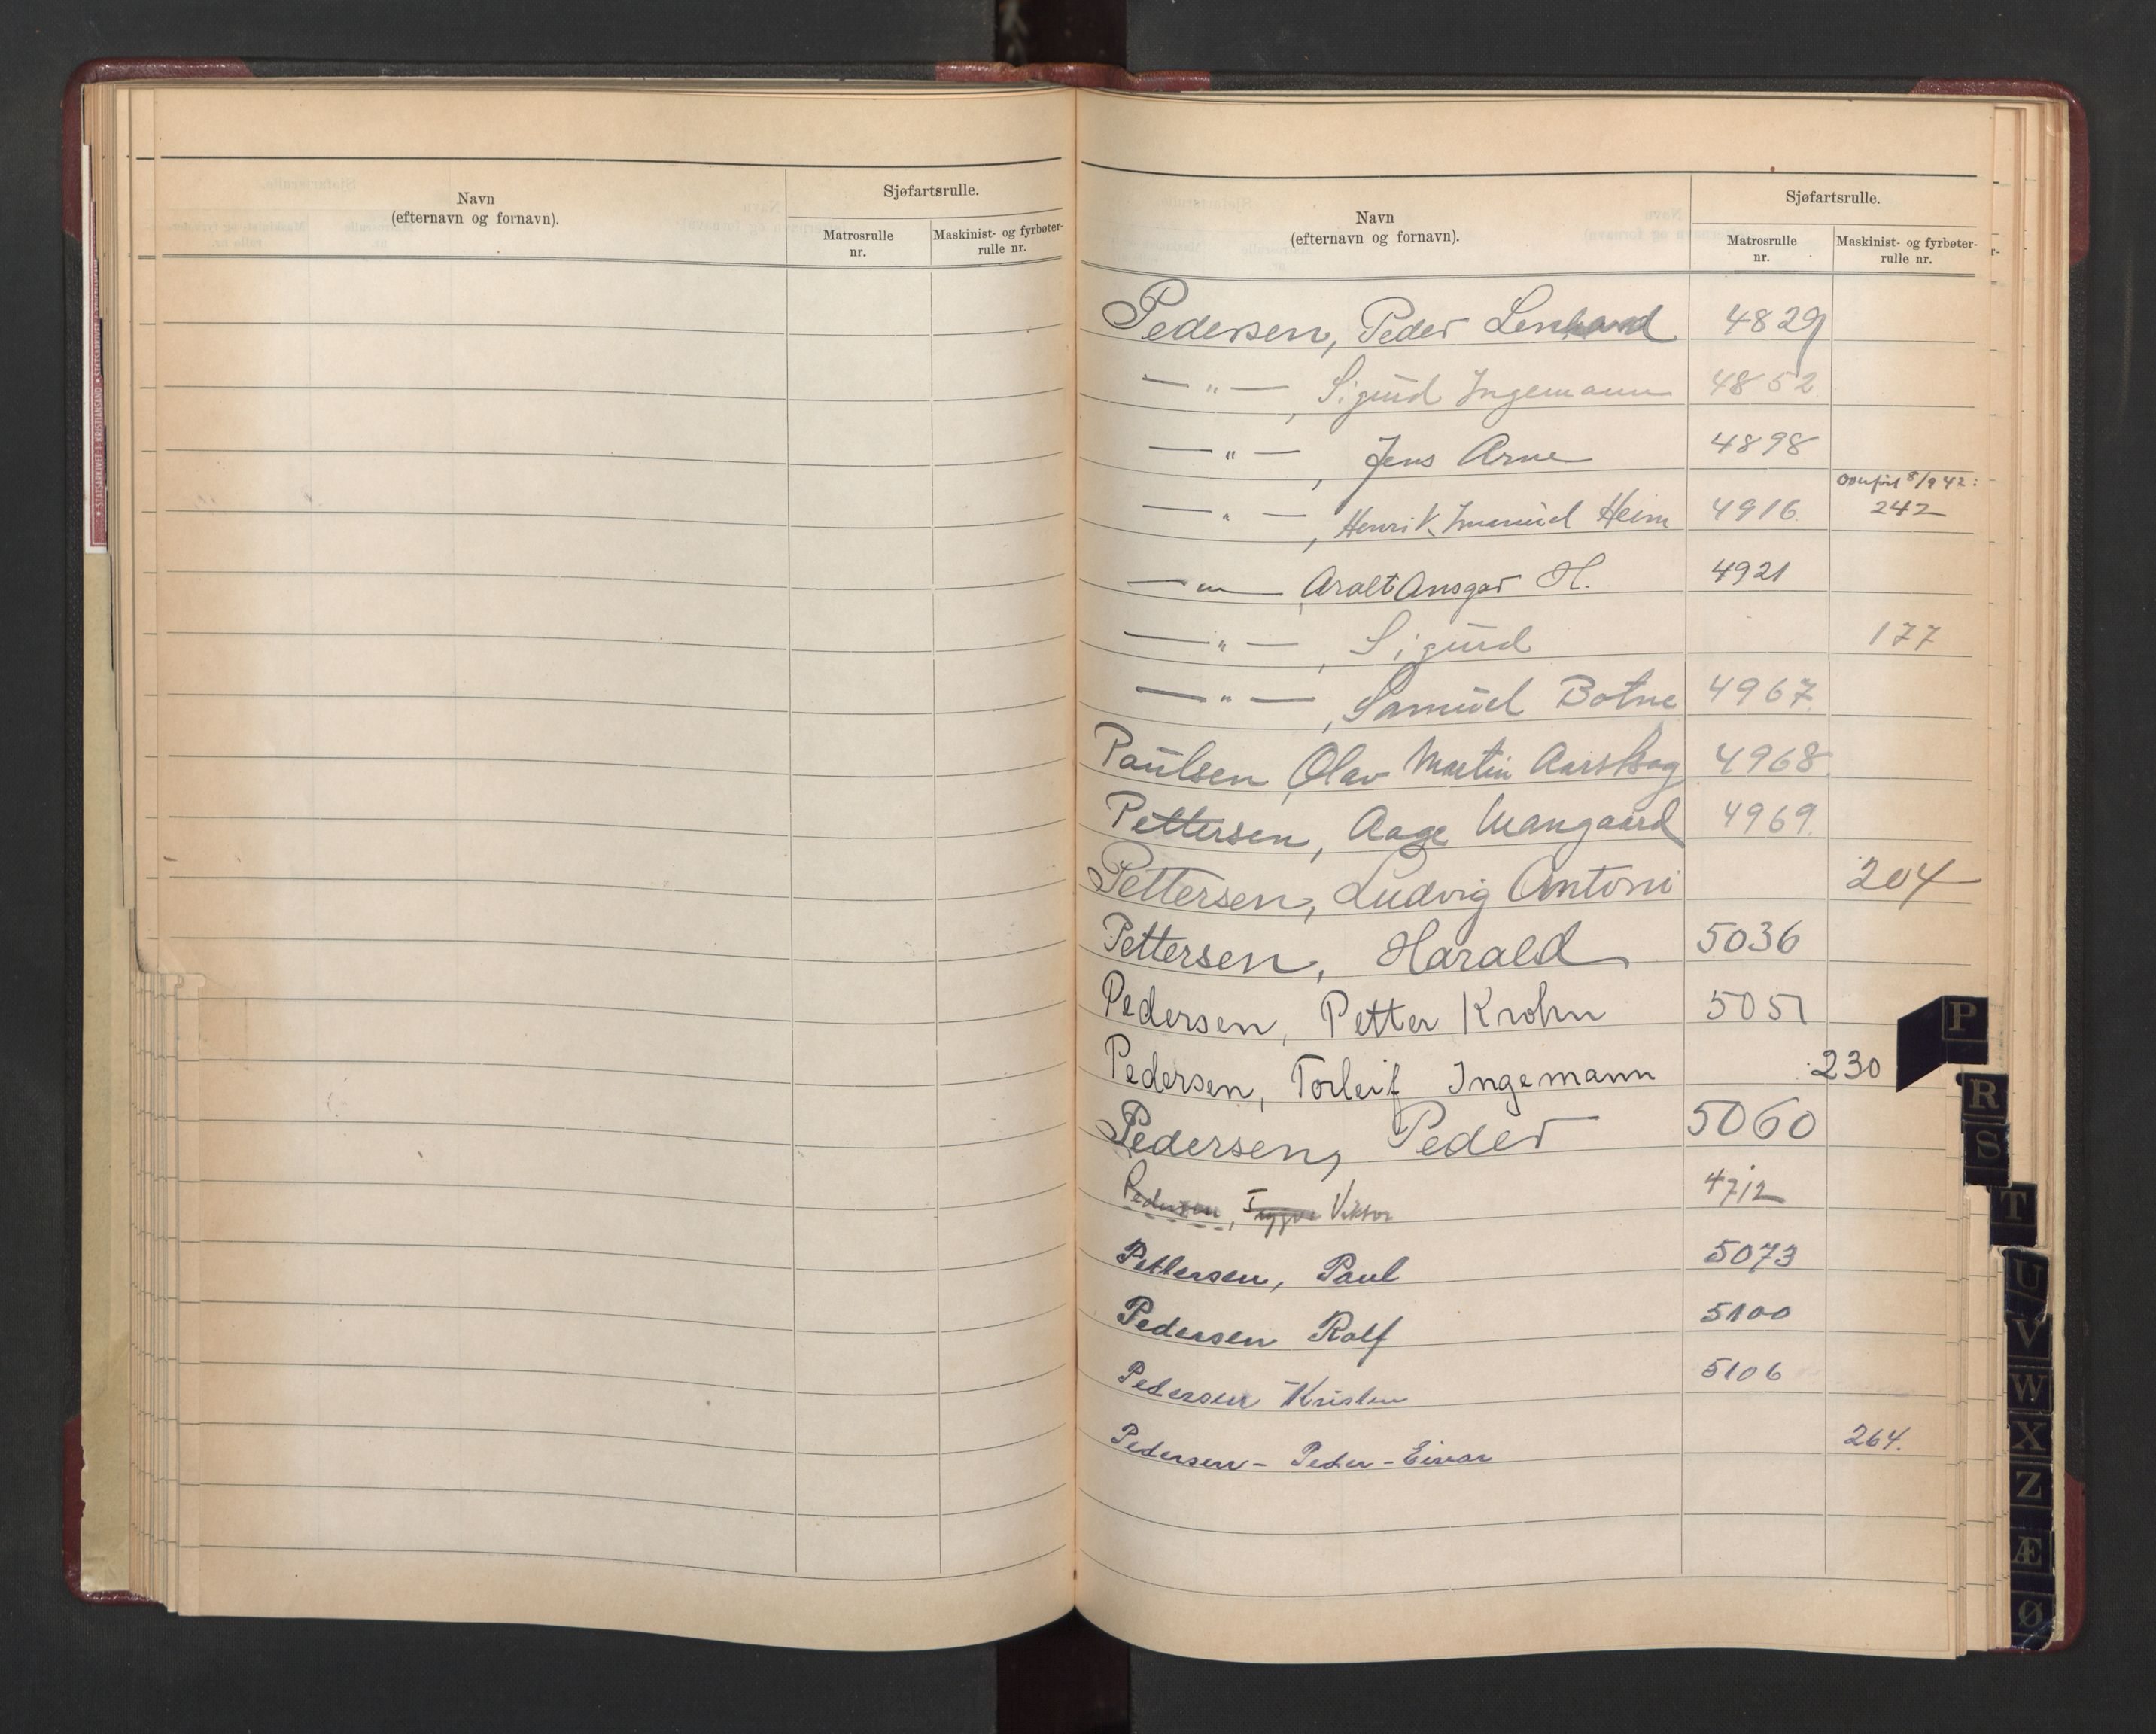 Navn
(efternavn og fornavn).
Sjøfartsrulle.
Matrosrulle
nr.
Maskinist- og fyrbøter-
rulle nr.
Navn
(efternavn og fornavn).
Sjøfartsrulle.
Matrosrulle
nr.
Maskinist- og fyrbøter-
rulle nr.
Pedersen, Peder Lenhard 4829
— " —, Sigurd Ingemann 4852
— " —, Jens Arne 4898
— " —, Henrik Imanuel Heim 4916. overført 8/9 42: 242
— " — Aralt Ansgar H. 4921
— " —, Sigurd 177
— " —, Samuel Botne 4967.
Paulsen, Olav Martin Aarskog 4968
Pettersen, Aage 4969.
Pettersen, Ludvig Antoni 204
Pettersen, Harald 5036
Pedersen, Petter Krohn 5051
Pedersen, Torleif Ingemann 230
Pedersen, Peder 5060
Pedersen, Trygve Viktor 4712
Pettersen, Paul 5073
Pedersen Rolf 5100
Pedersen Kristen 5106
Pedersen - Peder - Einar 264.
P
R
S
T
U
V
W
X
Z
Æ
Ø